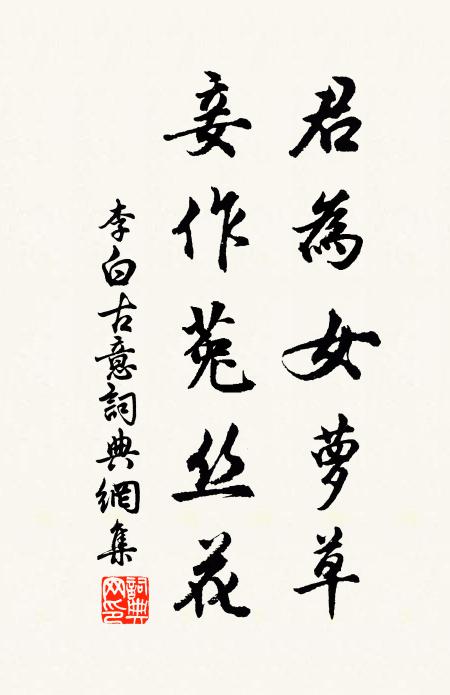 君為女萝草
妾作菟丝花
李白古意詞典網集
詞典网印